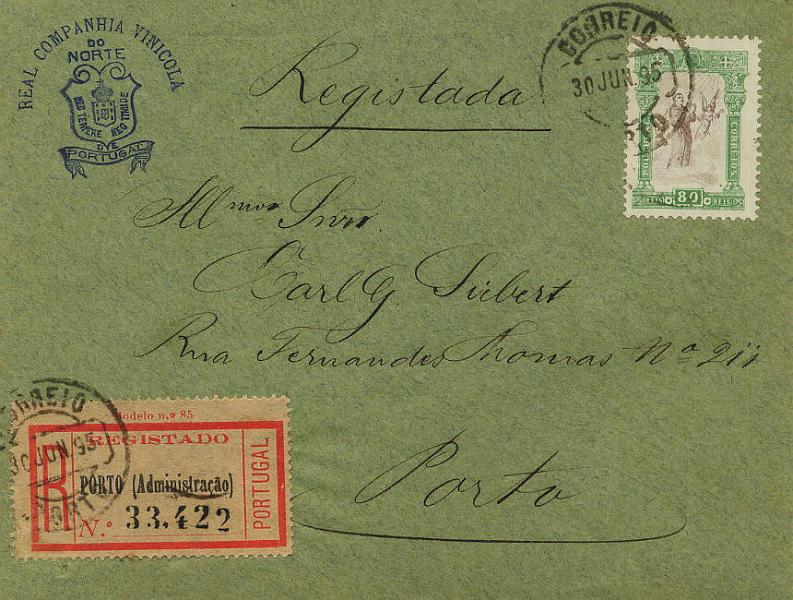 REAL COMPANHIA VINICOLA
DO
NORTE
DE
PORTUGAL
Registada
CORREIO
30 JUN. 95
CORREIOS
REIS 80 REIS
Illmos Snrs.
Carl G. Siebert
Rua Fernandes Thomas Nº 211
Porto
CORREIO
30 JUN. 95
PORTO
Modelo n.º 85
REGISTADO
R
PORTO (Administração)
N.º 33.422
PORTUGAL